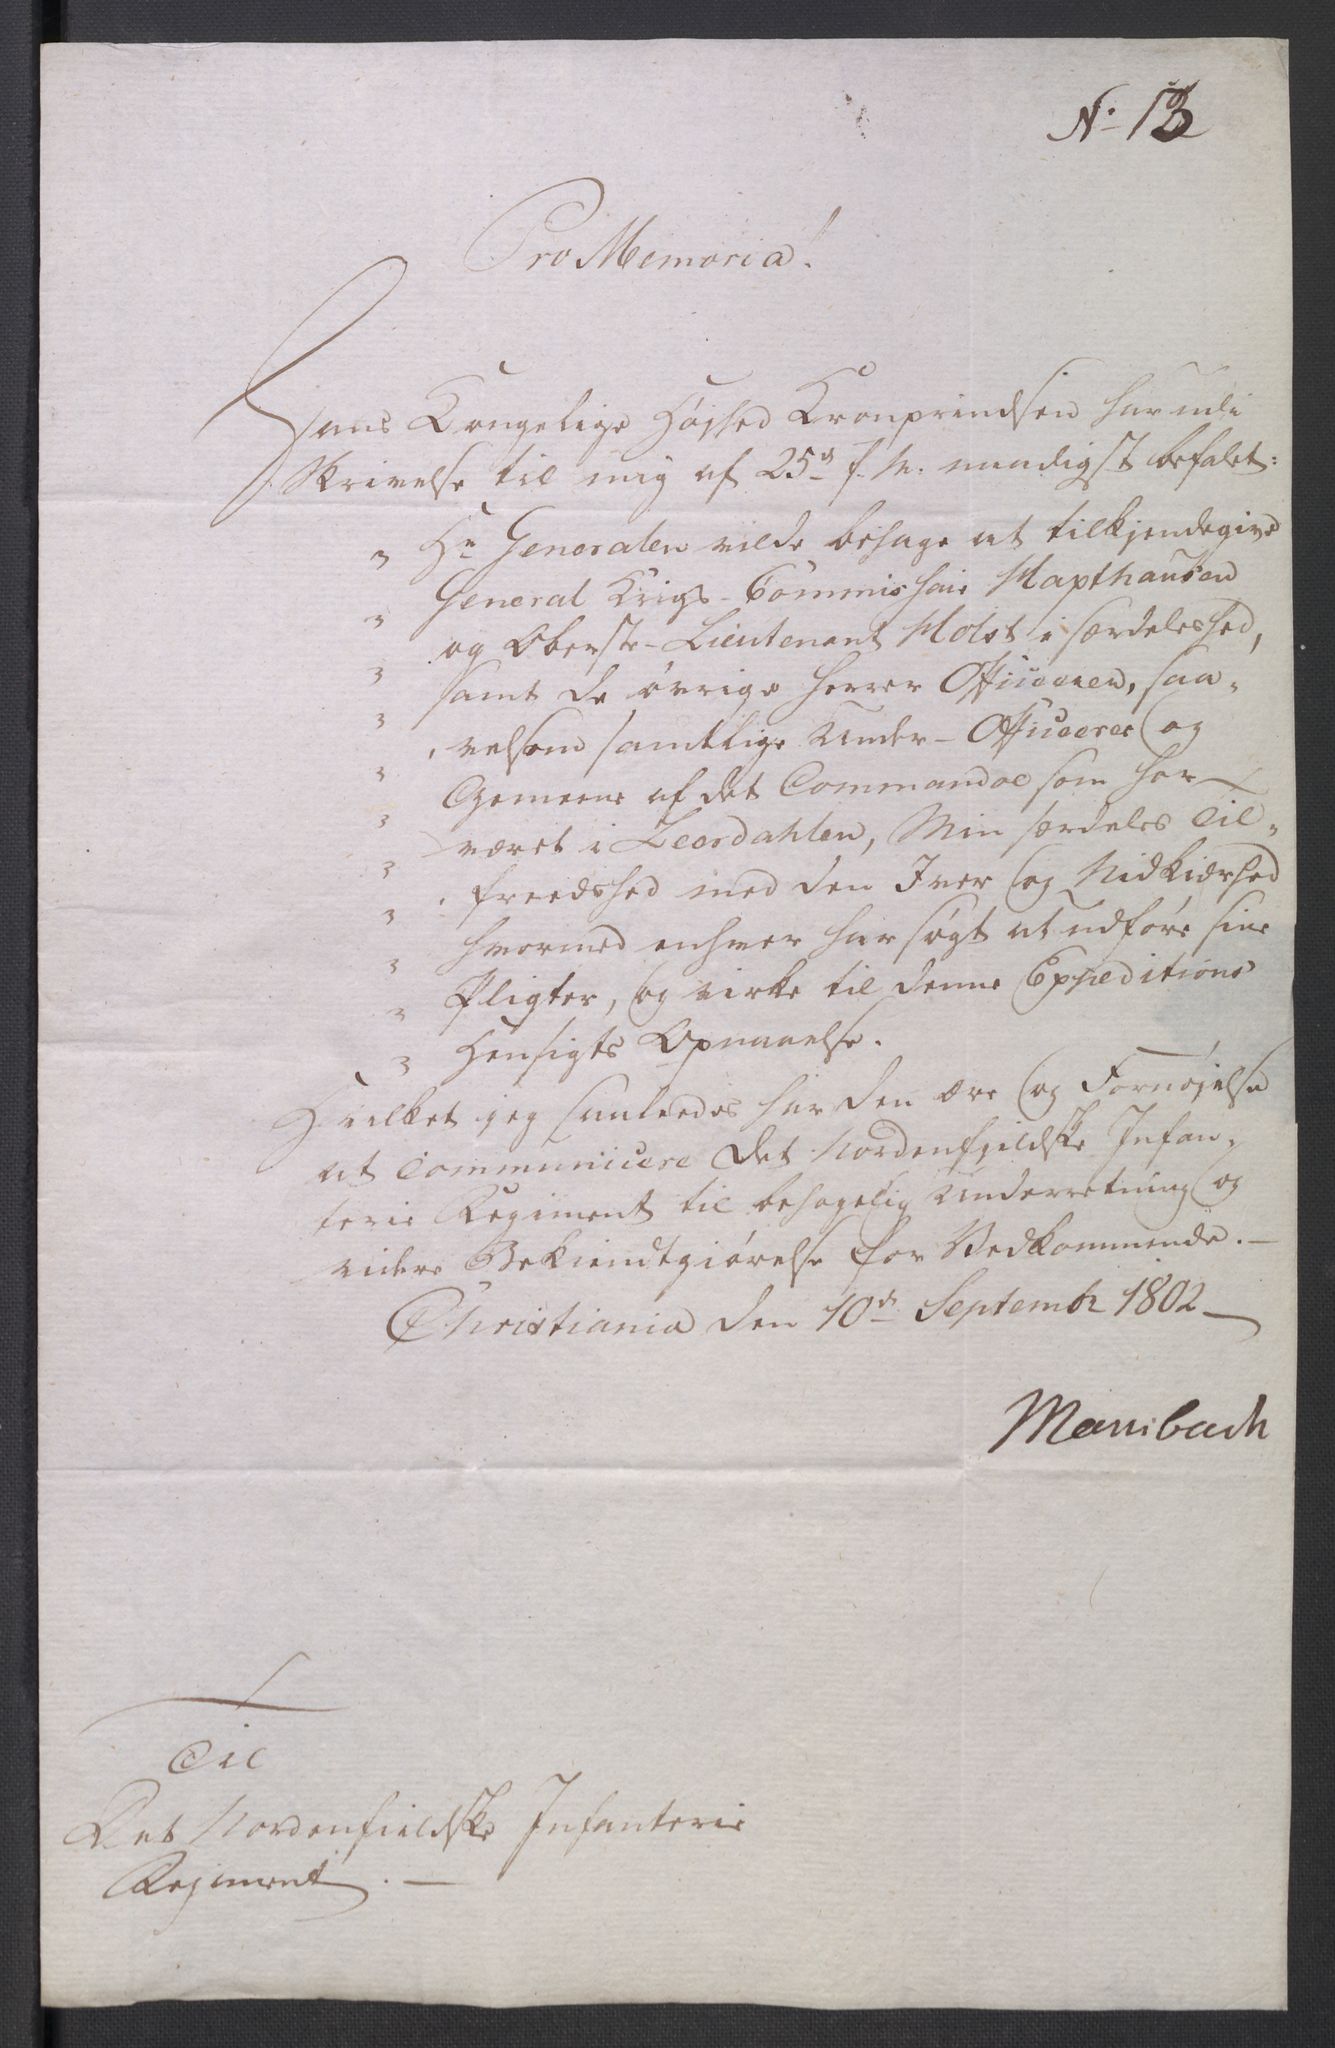 No 13
Pro Memoria!
Hans Kongelige Højhed Kronprindsen har udi
Skrivelse til mig af 25de f. M. naadigst befalet:
" Hr Generalen vilde behage at tilkjendegive
" General Krigs-Commissair Hapthausen
" og Oberste-Lieutenant Holst i særdeleshed,
" samt de øvrige Herrer Officerer, saa-
" velsom samtlige Under-Officerer og
" Gemeene af det Commandoe som har
" været i Leerdahlen, Min særdeles Til-
" freedshed med den Iver og Nidkiærhed
" hvormed enhver har søgt at udføre sine
" Pligter, og virke til denne Expeditions
" Hensigts Opnaaelse.
Hvilket jeg saaleedes har den Ære og Fornøjelse
at Communicere Det Nordenfjeldske Infan-
terie Regiment til behagelig Underretning og
videre Bekiendtgiørelse for Vedkommende. —
Christiania den 10de Septembr 1802 —
Mansbach
Til
Det Nordenfieldske Infanterie
Regiment. —